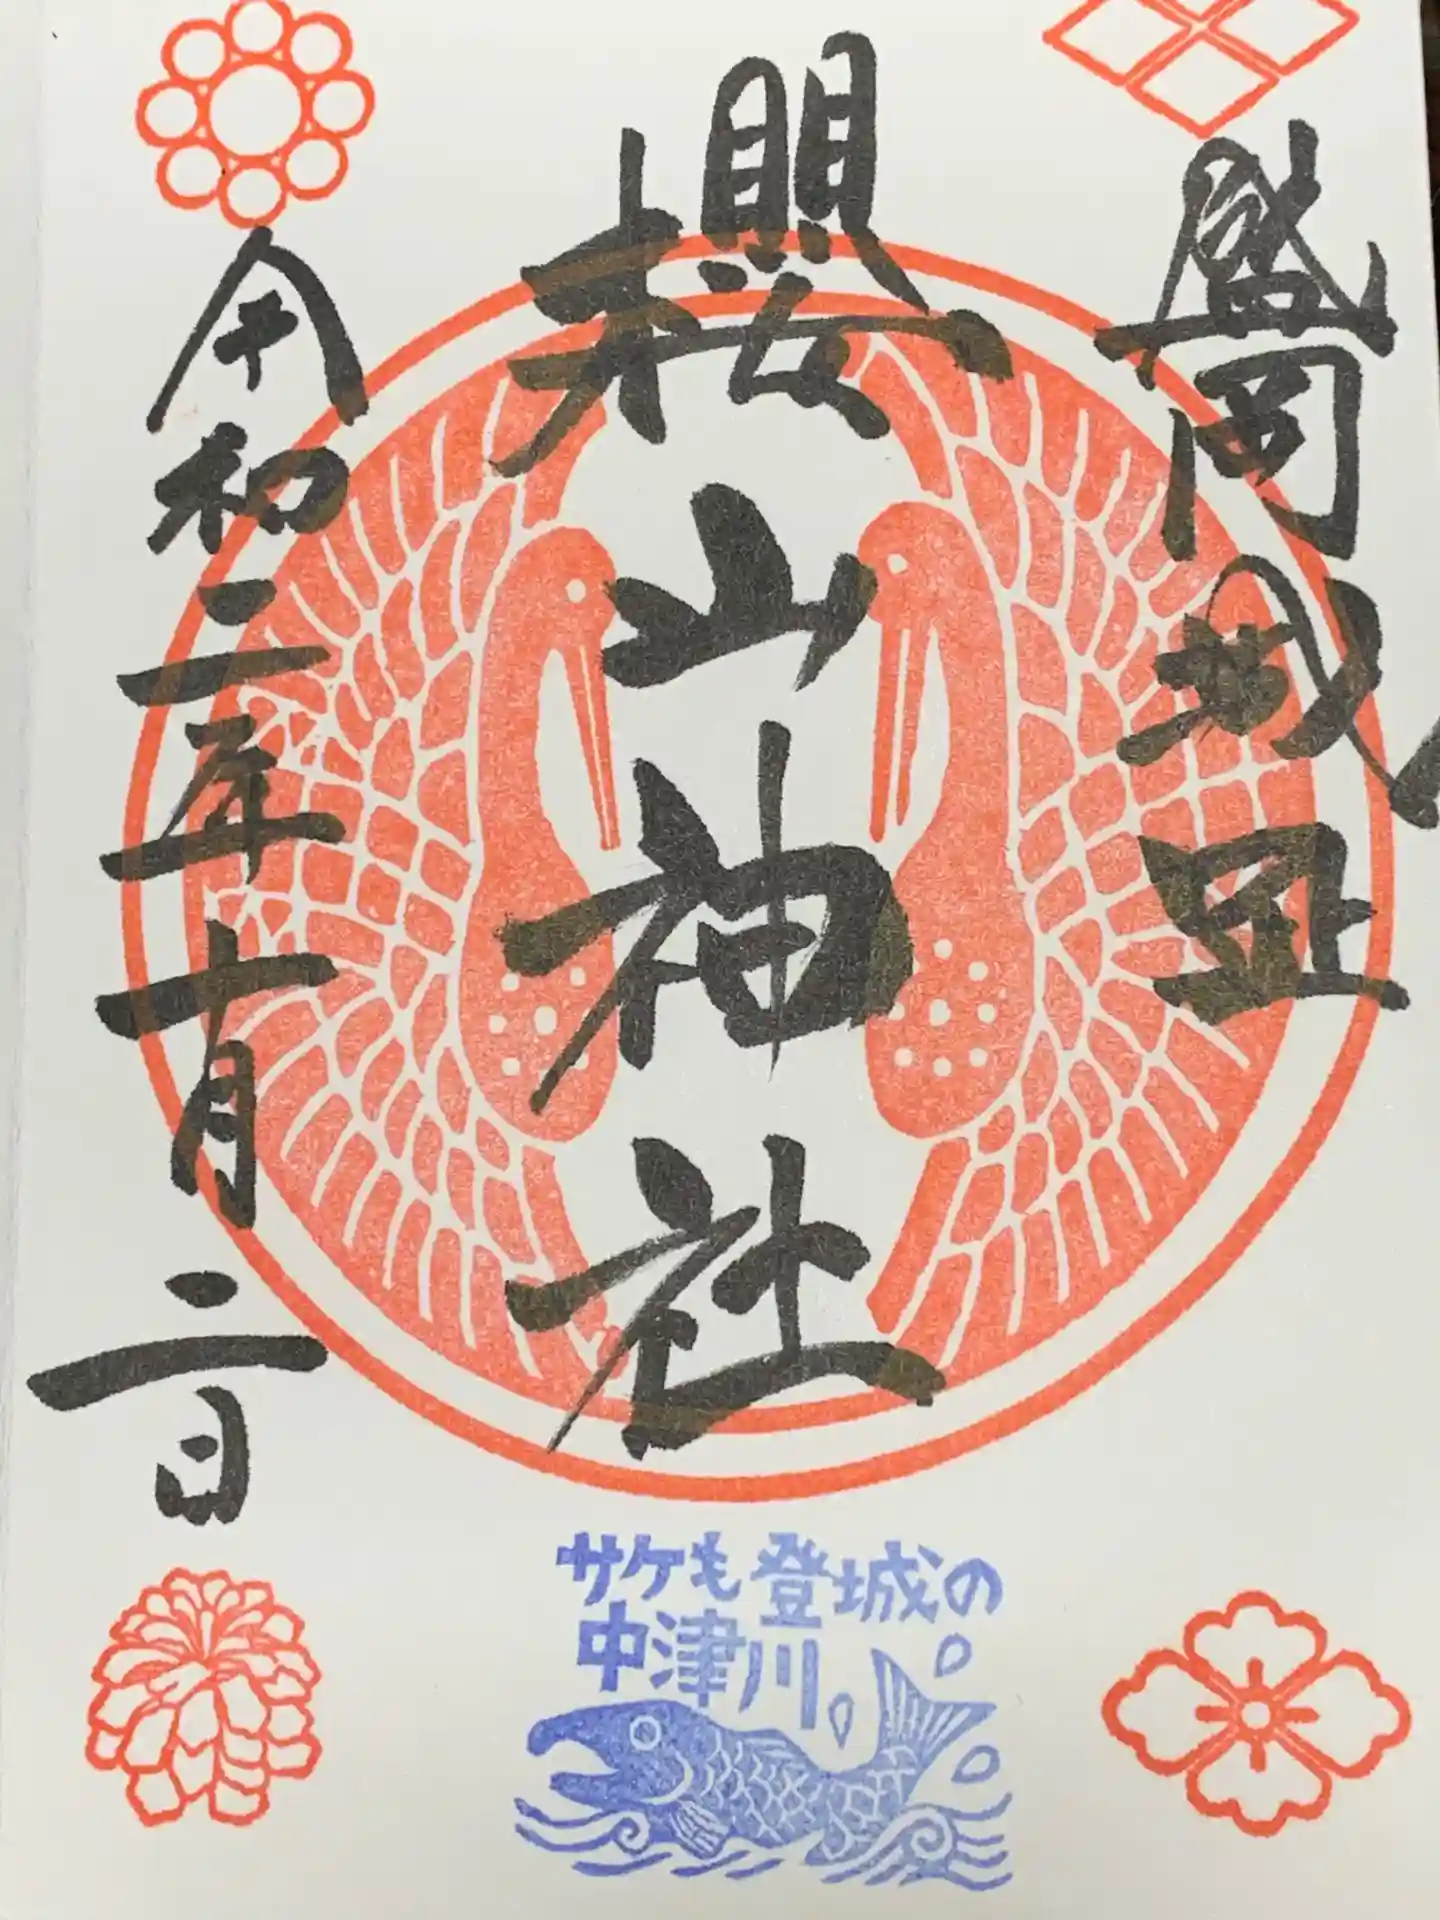 盛岡城址
櫻山神社
令和二年十月二日
サケも登城の
中津川